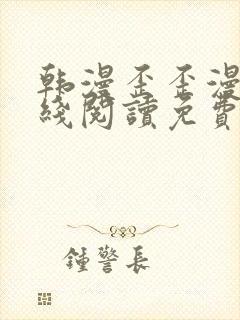 韩漫歪歪漫
綫閱讀免費
鍾警長